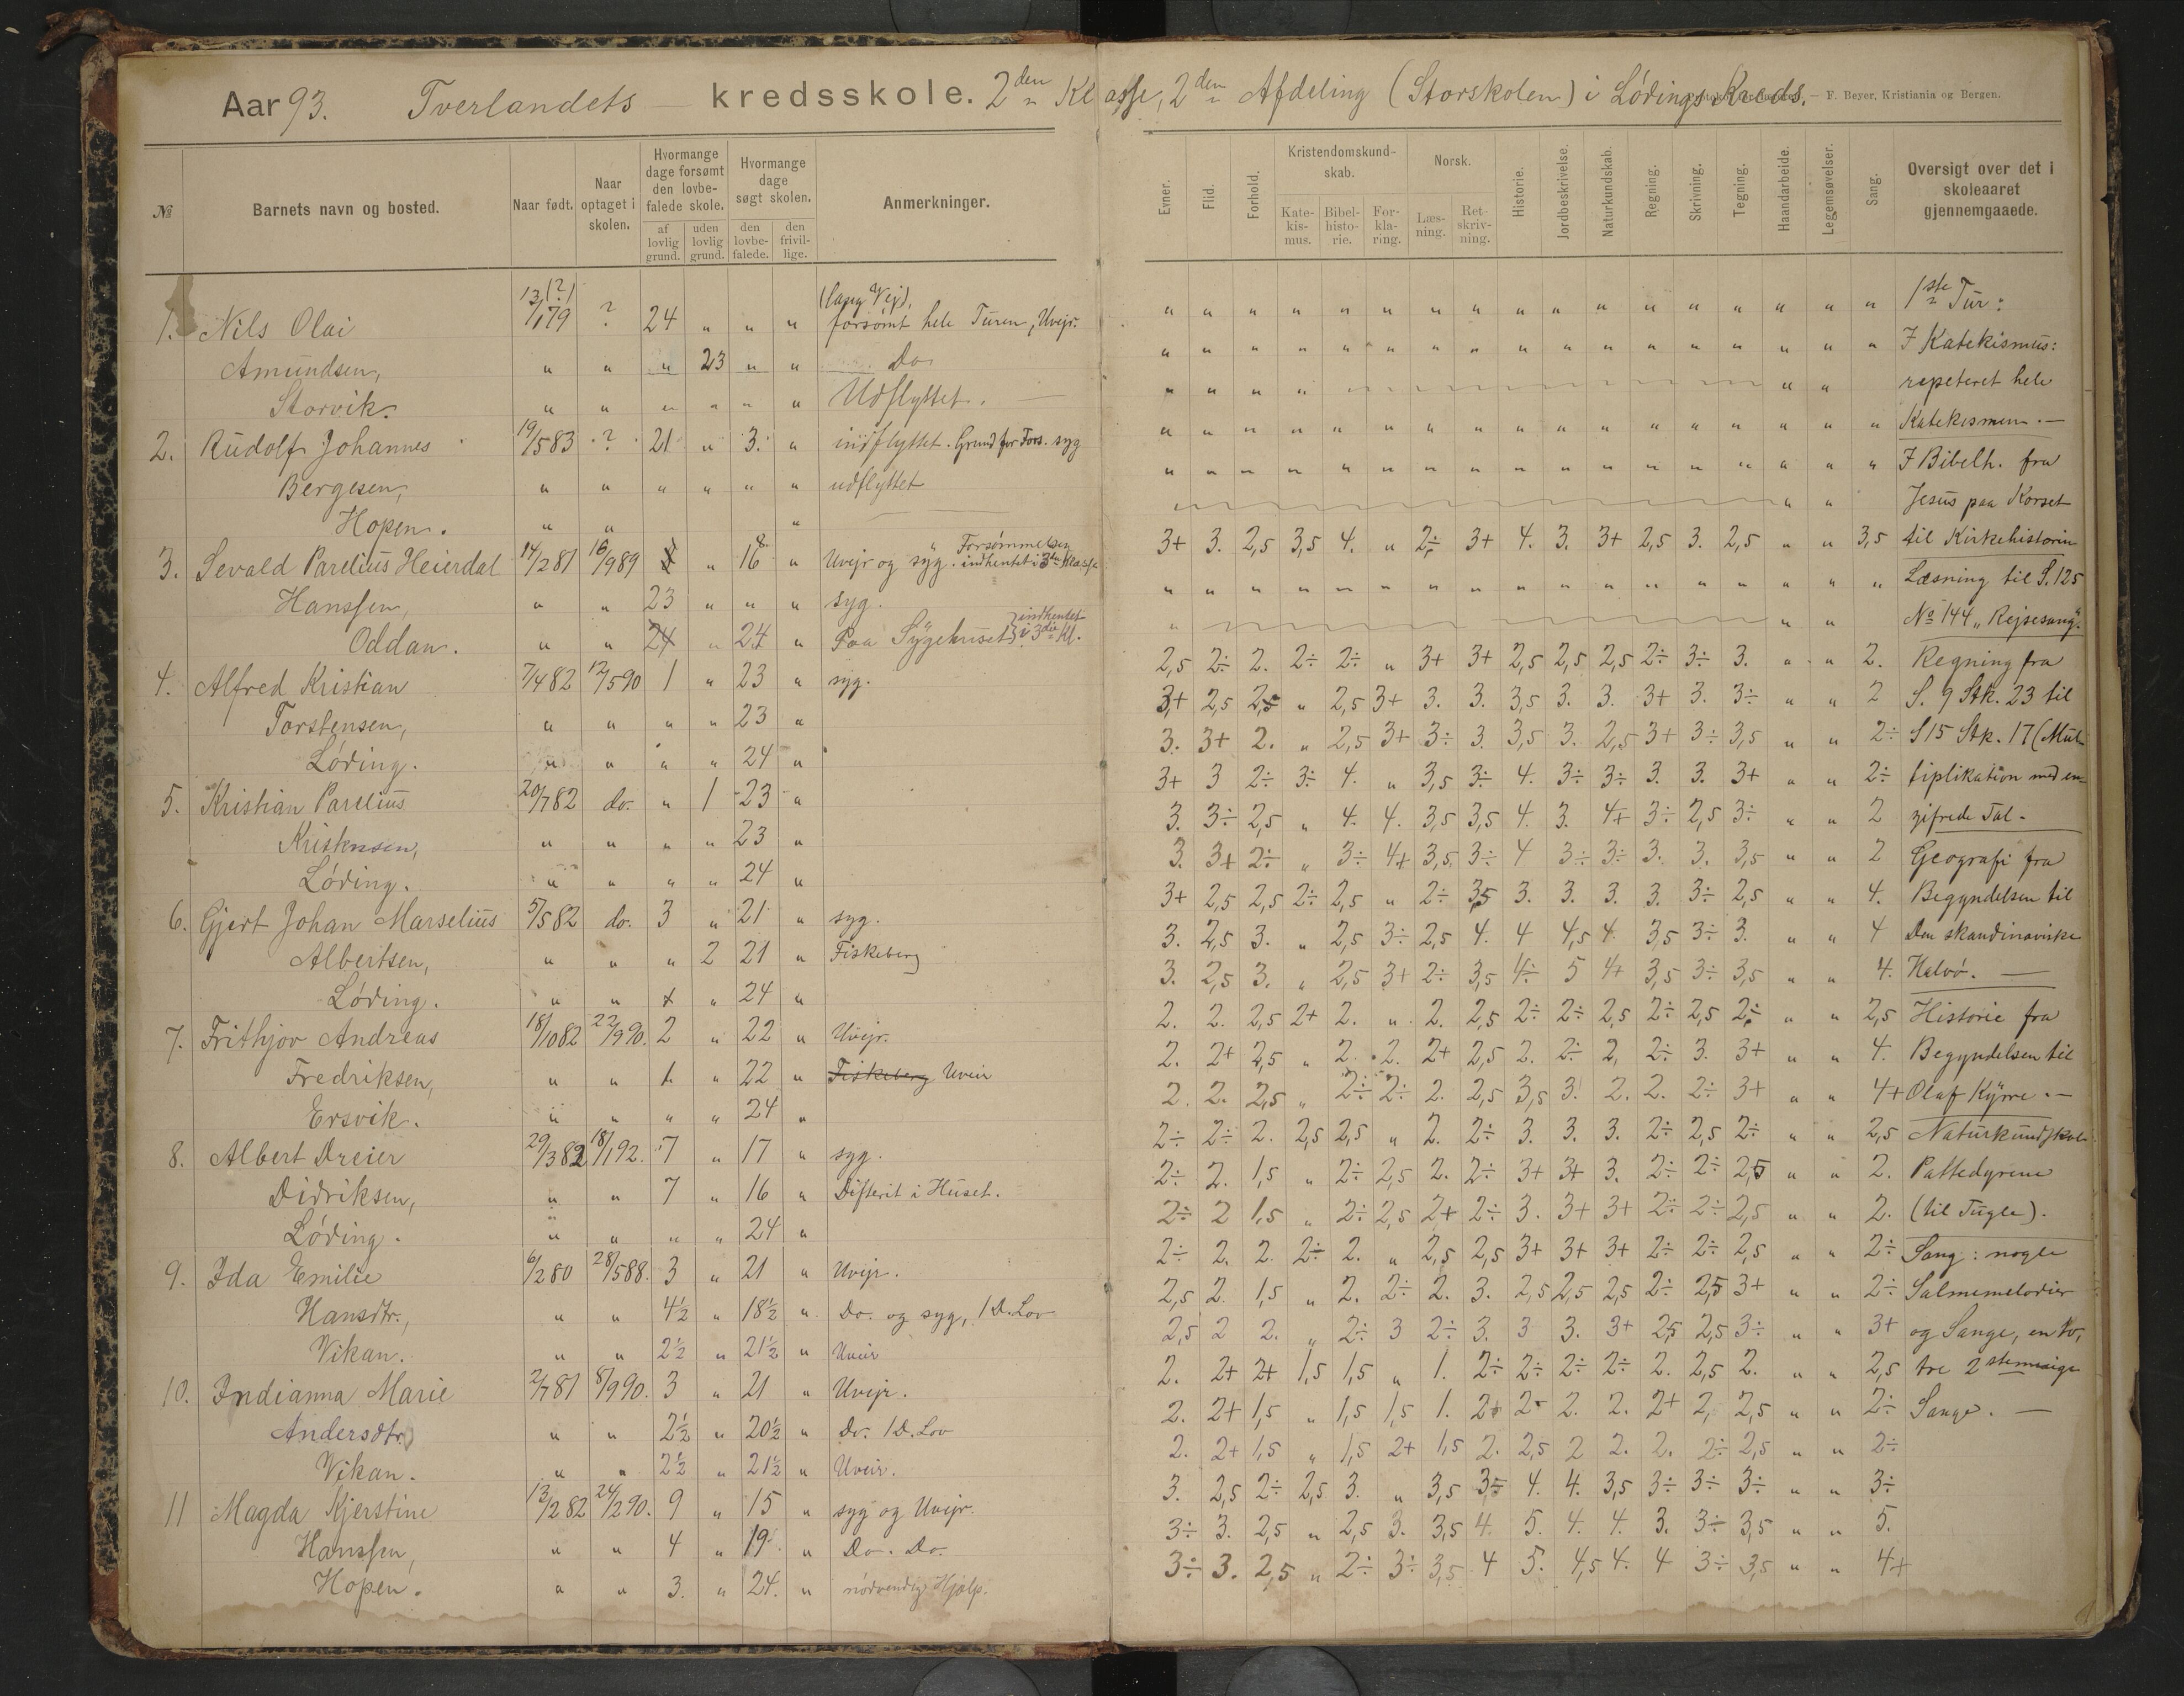 Aar 93. Tverlandets kredsskole. 2den Klasse, 2den Afdeling (Storskolen) i Lødings Kreds. — F. Beyer, Kristiania og Bergen.
№ Barnets navn og bosted. Naar født. Naar optaget i skolen. Hvormange dage forsømt den lovbefalede skole. af lovlig grund. uden lovlig grund. Hvormange dage søgt skolen. den lovbefalede. den frivillige. Anmerkninger.
Evner. Flid. Forhold. Kristendomskundskab. Katekismus. Bibelhistorie. Forklaring. Norsk. Læsning. Retskrivning. Historie. Jordbeskrivelse. Naturkundskab. Regning. Skrivning. Tegning. Haandarbeide. Legemsøvelser. Sang. Oversigt over det i skoleaaret gjennemgaaede.
1. Nils Olai 13/1 79 (?) ? 24 " " " (lang Vej), forsømt hele Turen, Uvejr.
Amundsen, " " " 23 " " Do
Storvik. " " " " " " Udflyttet.
2. Rudolf Johannes 19/5 83 ? 21 " 3. " indflyttet. Grund for Fors. syg
Bergesen, " " " " " " udflyttet
Hopen. " " "
3. Sevald Parelius Heierdal 14/2 81 16/9 89 " 16 " Uvejr og syg. Forsømmelsen indhentet i 3die Klasse
Hanssen, " " 23 " " " syg.
Oddan. " " 24 " 24 " Paa Sygehuset } indhentet i 3die Kl.
4. Alfred Kristian 7/4 82 12/5 90 1 " 23 " syg.
Torstensen, " " " " 23 "
Løding. " " " " 24 "
5. Kristian Parelius 20/7 82 do. " 1 23 "
Kristensen, " " " " 23 "
Løding. " " " " 24 "
6. Gjert Johan Marselius 5/5 82 do. 3 " 21 " syg.
Albertsen, " " " 2 21 " Fiskeberg
Løding. " " " 24 "
7. Frithjov Andreas 18/10 82 22/9 90. 2 " 22 " Uvejr.
Fredriksen, " " " 22 " Fiskeberg Uveir
Ersvik. " " " " 24 "
8. Albert Dreier 29/3 82 18/1 92. 7 " 17 " syg.
Didriksen, " " 7 " 16 " Difterit i Huset.
Løding. " " " " 24 "
9. Ida Emilie 6/2 80 28/5 88. 3 " 21 " Uvejr.
Hansdtr., " " 4½ " 18½ " Do. og syg, 1 D. Lov
Vikan. " " 2½ " 21½ " Uveir
10. Indianna Marie 2/7 81 8/9 90. 3 " 21 " Uvejr.
Andersdtr. " " 2½ " 20½ " Do. 1 D. Lov
Vikan. " " 2½ " 21½ " Uveir.
11 Magda Kjerstine 13/2 82 24/2 90. 9 " 15 " syg og Uvejr.
Hanssen, " " 4 " 19. " Do. Do.
Hopen. " " 3. " 24. " nødvendig Hjælp.
" " " " " " " " " " " " " " " " " 1ste Tur:
" " " " " " " " " " " " " " " " " I Katekismus:
" " " " " " repeteret hele
" " " " " " " " " " " " " " " " " Katekismen. —
" " " " " " " " " " " " " " " " " I Bibelh. fra
" " Jesus paa Korset
3+ 3. 2,5 3,5 4. " 2÷ 3+ 4. 3. 3+ 2,5 3. 2,5 " " 3,5 til Kirkehistorien
" " " " " " " " " " " " " " " " " Læsning til S. 125
" " " № 144 „Rejsesang".
2,5 2÷ 2. 2÷ 2÷ " 3+ 3+ 2,5 2,5 2,5 2÷ 3÷ 3. " " 2. Regning fra
3+ 2,5 2,5 " 2,5 3+ 3. 3. 3,5 3. 3. 3+ 3. 3÷ " " 2 S. 9 Stk. 23 til
3. 3+ 2. " 2,5 3+ 3÷ 3. 3,5 3. 2,5 3+ 3÷ 3,5 " " 2÷ S 15 Stk. 17 (Mul-
3+ 3 2÷ 3÷ 4. " 3,5 3÷ 4. 3÷ 3÷ 3. 3. 3+ " " 2÷ tiplikation med en-
3. 3÷ 2,5 " 4. 4. 3,5 3,5 4. 3. 4+ 3÷ 2,5 3÷ " " 2 zifrede Tal.
3. 3+ 2÷ " 3÷ 4+ 3,5 3÷ 4 3÷ 3÷ 3. 3. 3,5 " " 2 Geografi fra
3+ 2,5 2,5 2÷ 2,5 " 2÷ 3,5 3. 3. 3. 3. 3÷ 2,5 " " 4. Begyndelsen til
3. 2,5 3. " 2,5 3÷ 2,5 4. 4 4,5 4. 3,5 3÷ 3. " " 4 Den skandinaviske
3. 2,5 3. " 2,5 3+ 2÷ 3,5 4÷ 5 4+ 3,5 3÷ 3,5 " " 4. Halvø. —
2. 2. 2,5 2+ 2. " 2. 2,5 2÷ 2÷ 2,5 2÷ 2,5 2÷ " " 2,5 Historie fra
2. 2+ 2,5 " 2. 2. 2+ 2,5 2. 2÷ 2, 2÷ 3. 3+ " " 4. Begyndelsen til
2. 2. 2,5 " 2÷ 2÷ 2. 2,5 3,5 3. 2. 2. 2÷ 3+ " " 4+ Olaf Kyrre. —
2÷ 2÷ 2. 2,5 2,5 " 2. 2÷ 3. 3. 3. 2÷ 2,5 2÷ " " 2,5 Naturkundskab
2÷ 2. 1,5 " 2÷ 2,5 2. 2÷ 3+ 3+ 3. 2÷ 2÷ 2,5 " " 2. Pattedyrene
2÷ 2 1,5 " 2÷ 2,5 2+ 2÷ 3. 3+ 3+ 2÷ 2÷ 2,5 " " 2. (til Fugle).
2÷ 2. 2. 2÷ 2. " 2,5 2,5 3+ 3+ 3+ 2÷ 2÷ 2,5 " " 2÷ Sang: nogle
2,5 2. 1,5 " 2. 2÷ 2. 3. 2,5 2,5 2,5 2÷ 2,5 3+ " " 2÷ Salmemelodier
2,5 2 2. " 2÷ 3 2÷ 3. 3 3. 3+ 2,5 2,5 3÷ " " 3+ og Sange, en to,
2. 2+ 2+ 1,5 1,5 " 1. 2÷ 2÷ 2÷ 2÷ 2. 2,5 2. " " 2,5 tre 2stemmige
2. 2+ 1,5 " 1,5 1,5 1. 2+ 2÷ 2. 2. 2+ 2, 2,5 " " 2÷ Sange. —
2. 2+ 1,5 " 1,5 2+ 1,5 2. 2,5 2 2. 2. 2÷ 2,5 " " 2÷
3. 2,5 2÷ 2,5 3. " 3,5 3÷ 4. 4. 3,5 3÷ 3÷ 3÷ " " 3÷
3÷ 3. 2,5 " 2,5 3. 3,5 4. 5. 4. 4. 3. 3÷ 3,5 " " 5.
3÷ 3. 2,5 " 2÷ 3÷ 3,5 4 5. 4,5 4. 4 3÷ 3,5 " " 4+